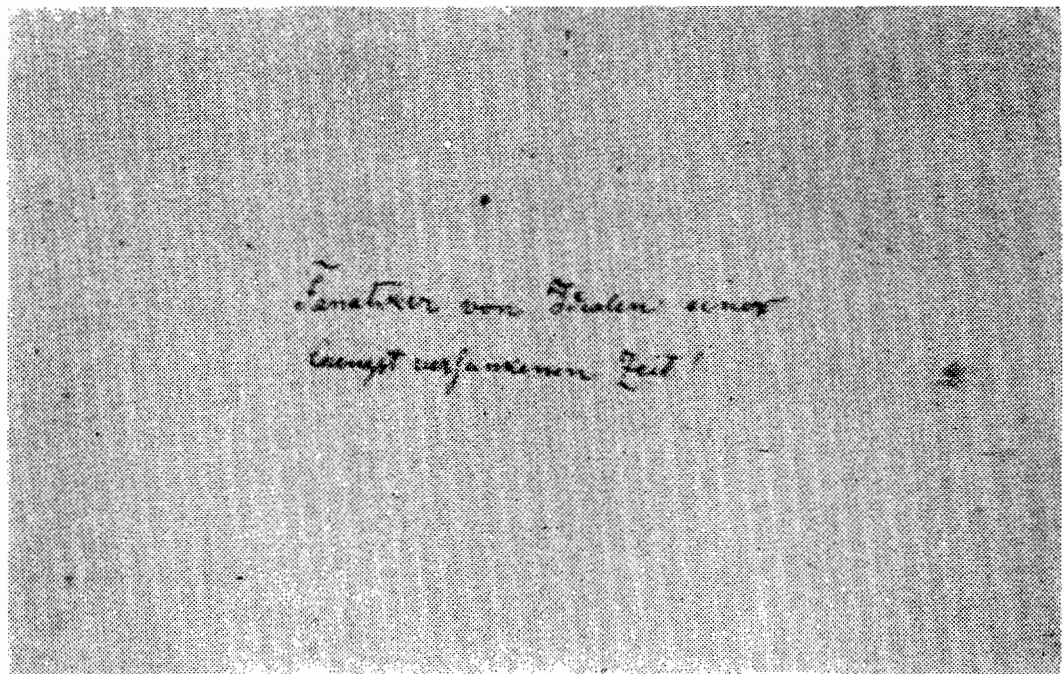 Fanatiker von Idealen einer
laengst versunkenen Zeit!